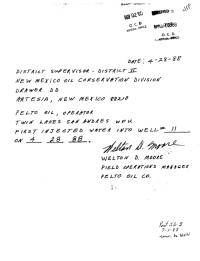 O.C.D.
O.C.D.
DATE: 4-28-88
DISTRICT SUPERVISOR - DISTRICT II
NEW MEXICO OIL CONSERVATION DIVISION
DRAWER DD
ARTESIA, NEW MEXICO 88210
PELTO OIL, OPERATOR
TWIN LAKES SAN ANDRES UNIT
FIRST INJECTED WATER INTO WELL # 11
ON 4 28 88.
Welton D. Moore
WELTON D. MOORE
FIELD OPERATIONS MANAGER
PELTO OIL CO.